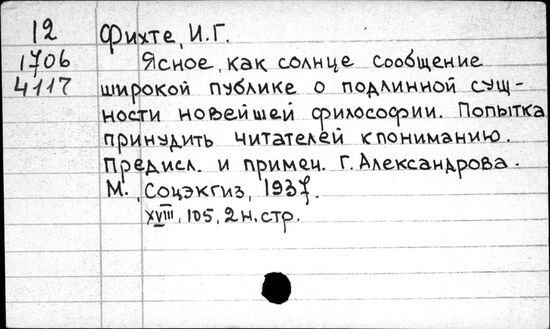 12 Фихте, И.Г.
1706 Ясное, как солнце сообщение
4117 широкой публике о подлинной сущ-
ности новейшей философии. Попытка
принудить читателей к пониманию.
Предисл. и примеч. Г. Александрова.
М., Соцэкгиз, 1937.
XVIII, 105, 2 н. стр.